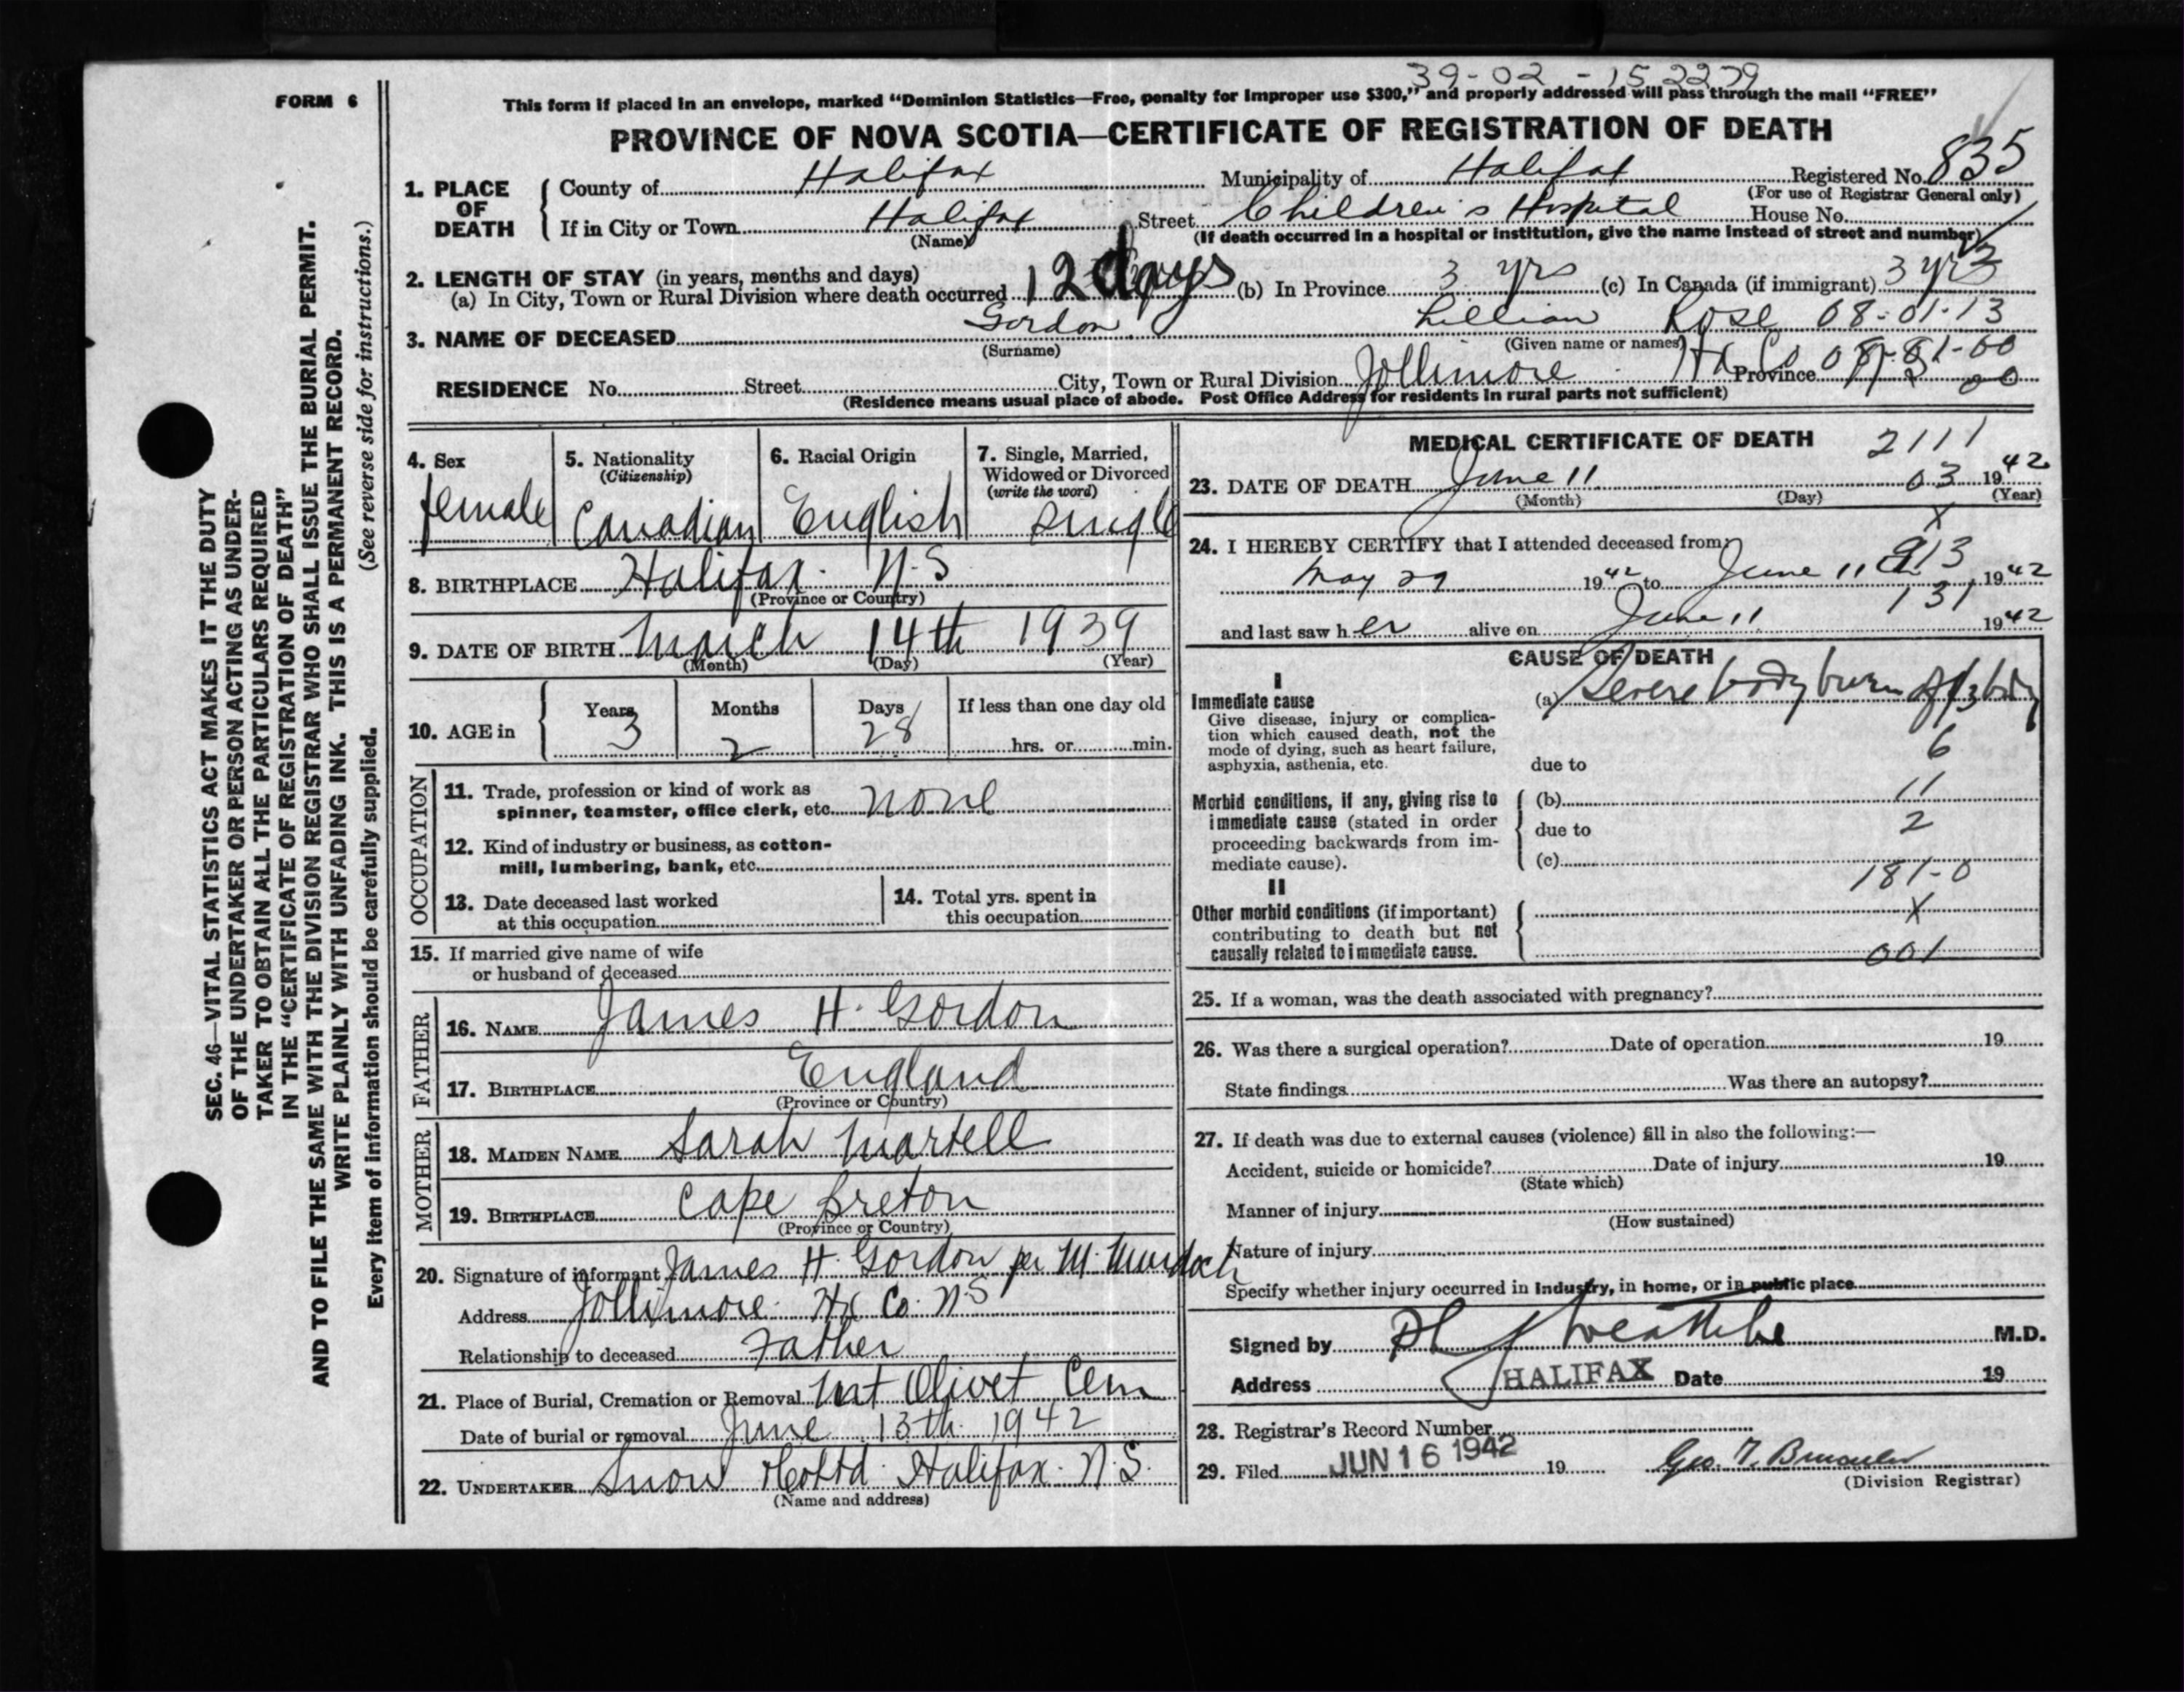 39-02-152279
FORM 6
This form if placed in an envelope, marked "Dominion Statistics—Free, penalty for improper use $300," and properly addressed will pass through the mail "FREE"
PROVINCE OF NOVA SCOTIA—CERTIFICATE OF REGISTRATION OF DEATH
835
1. PLACE OF DEATH County of Halifax Municipality of Halifax Registered No.
(For use of Registrar General only)
If in City or Town Halifax Street Children's Hospital House No.
(Name) (If death occurred in a hospital or institution, give the name instead of street and number)
2. LENGTH OF STAY (in years, months and days)
(a) In City, Town or Rural Division where death occurred 12 days (b) In Province 3 yrs (c) In Canada (if immigrant) 3 yrs
3. NAME OF DECEASED Gordon Lillian Rose 08-01-13
(Surname) (Given name or names)
RESIDENCE No. Street City, Town or Rural Division Jollimore Hx Co Province
(Residence means usual place of abode. Post Office Address for residents in rural parts not sufficient)
4. Sex 5. Nationality 6. Racial Origin 7. Single, Married,
(Citizenship) Widowed or Divorced
(write the word)
female Canadian English single
8. BIRTHPLACE Halifax N.S
(Province or Country)
9. DATE OF BIRTH March 14th 1939
(Month) (Day) (Year)
10. AGE in Years Months Days If less than one day old
3 2 28 hrs. or min.
OCCUPATION
11. Trade, profession or kind of work as
spinner, teamster, office clerk, etc. none
12. Kind of industry or business, as cotton-
mill, lumbering, bank, etc.
13. Date deceased last worked 14. Total yrs. spent in
at this occupation this occupation
15. If married give name of wife
or husband of deceased
FATHER
16. NAME James H. Gordon
17. BIRTHPLACE England
(Province or Country)
MOTHER
18. MAIDEN NAME Sarah Martell
19. BIRTHPLACE Cape Breton
(Province or Country)
20. Signature of informant James H. Gordon per M. Murdoch
Address Jollimore Hx Co. N.S
Relationship to deceased Father
21. Place of Burial, Cremation or Removal Mt Olivet Cem
Date of burial or removal June 13th 1942
22. UNDERTAKER Snow & Co Ltd Halifax N.S.
(Name and address)
MEDICAL CERTIFICATE OF DEATH 2111
23. DATE OF DEATH June 11 03 1942
(Month) (Day) (Year)
x
24. I HEREBY CERTIFY that I attended deceased from:
May 29 1942 to June 11 1942
131
and last saw her alive on June 11 1942
CAUSE OF DEATH
I
Immediate cause (a) Severe body burn of 1/3 body
Give disease, injury or complica-
tion which caused death, not the
mode of dying, such as heart failure,
asphyxia, asthenia, etc. due to 6
Morbid conditions, if any, giving rise to (b) 11
immediate cause (stated in order due to 2
proceeding backwards from im-
mediate cause). (c)
181-0
II
Other morbid conditions (if important) X
contributing to death but not
causally related to immediate cause. 001
25. If a woman, was the death associated with pregnancy?
26. Was there a surgical operation? Date of operation 19
State findings Was there an autopsy?
27. If death was due to external causes (violence) fill in also the following:—
Accident, suicide or homicide? Date of injury 19
(State which)
Manner of injury
(How sustained)
Nature of injury
Specify whether injury occurred in industry, in home, or in public place
Signed by M.D.
Address HALIFAX Date 19
28. Registrar's Record Number
29. Filed JUN 16 1942 19
(Division Registrar)
SEC. 46—VITAL STATISTICS ACT MAKES IT THE DUTY
OF THE UNDERTAKER OR PERSON ACTING AS UNDER-
TAKER TO OBTAIN ALL THE PARTICULARS REQUIRED
IN THE "CERTIFICATE OF REGISTRATION OF DEATH"
AND TO FILE THE SAME WITH THE DIVISION REGISTRAR WHO SHALL ISSUE THE BURIAL PERMIT.
WRITE PLAINLY WITH UNFADING INK. THIS IS A PERMANENT RECORD.
Every item of information should be carefully supplied. (See reverse side for instructions.)